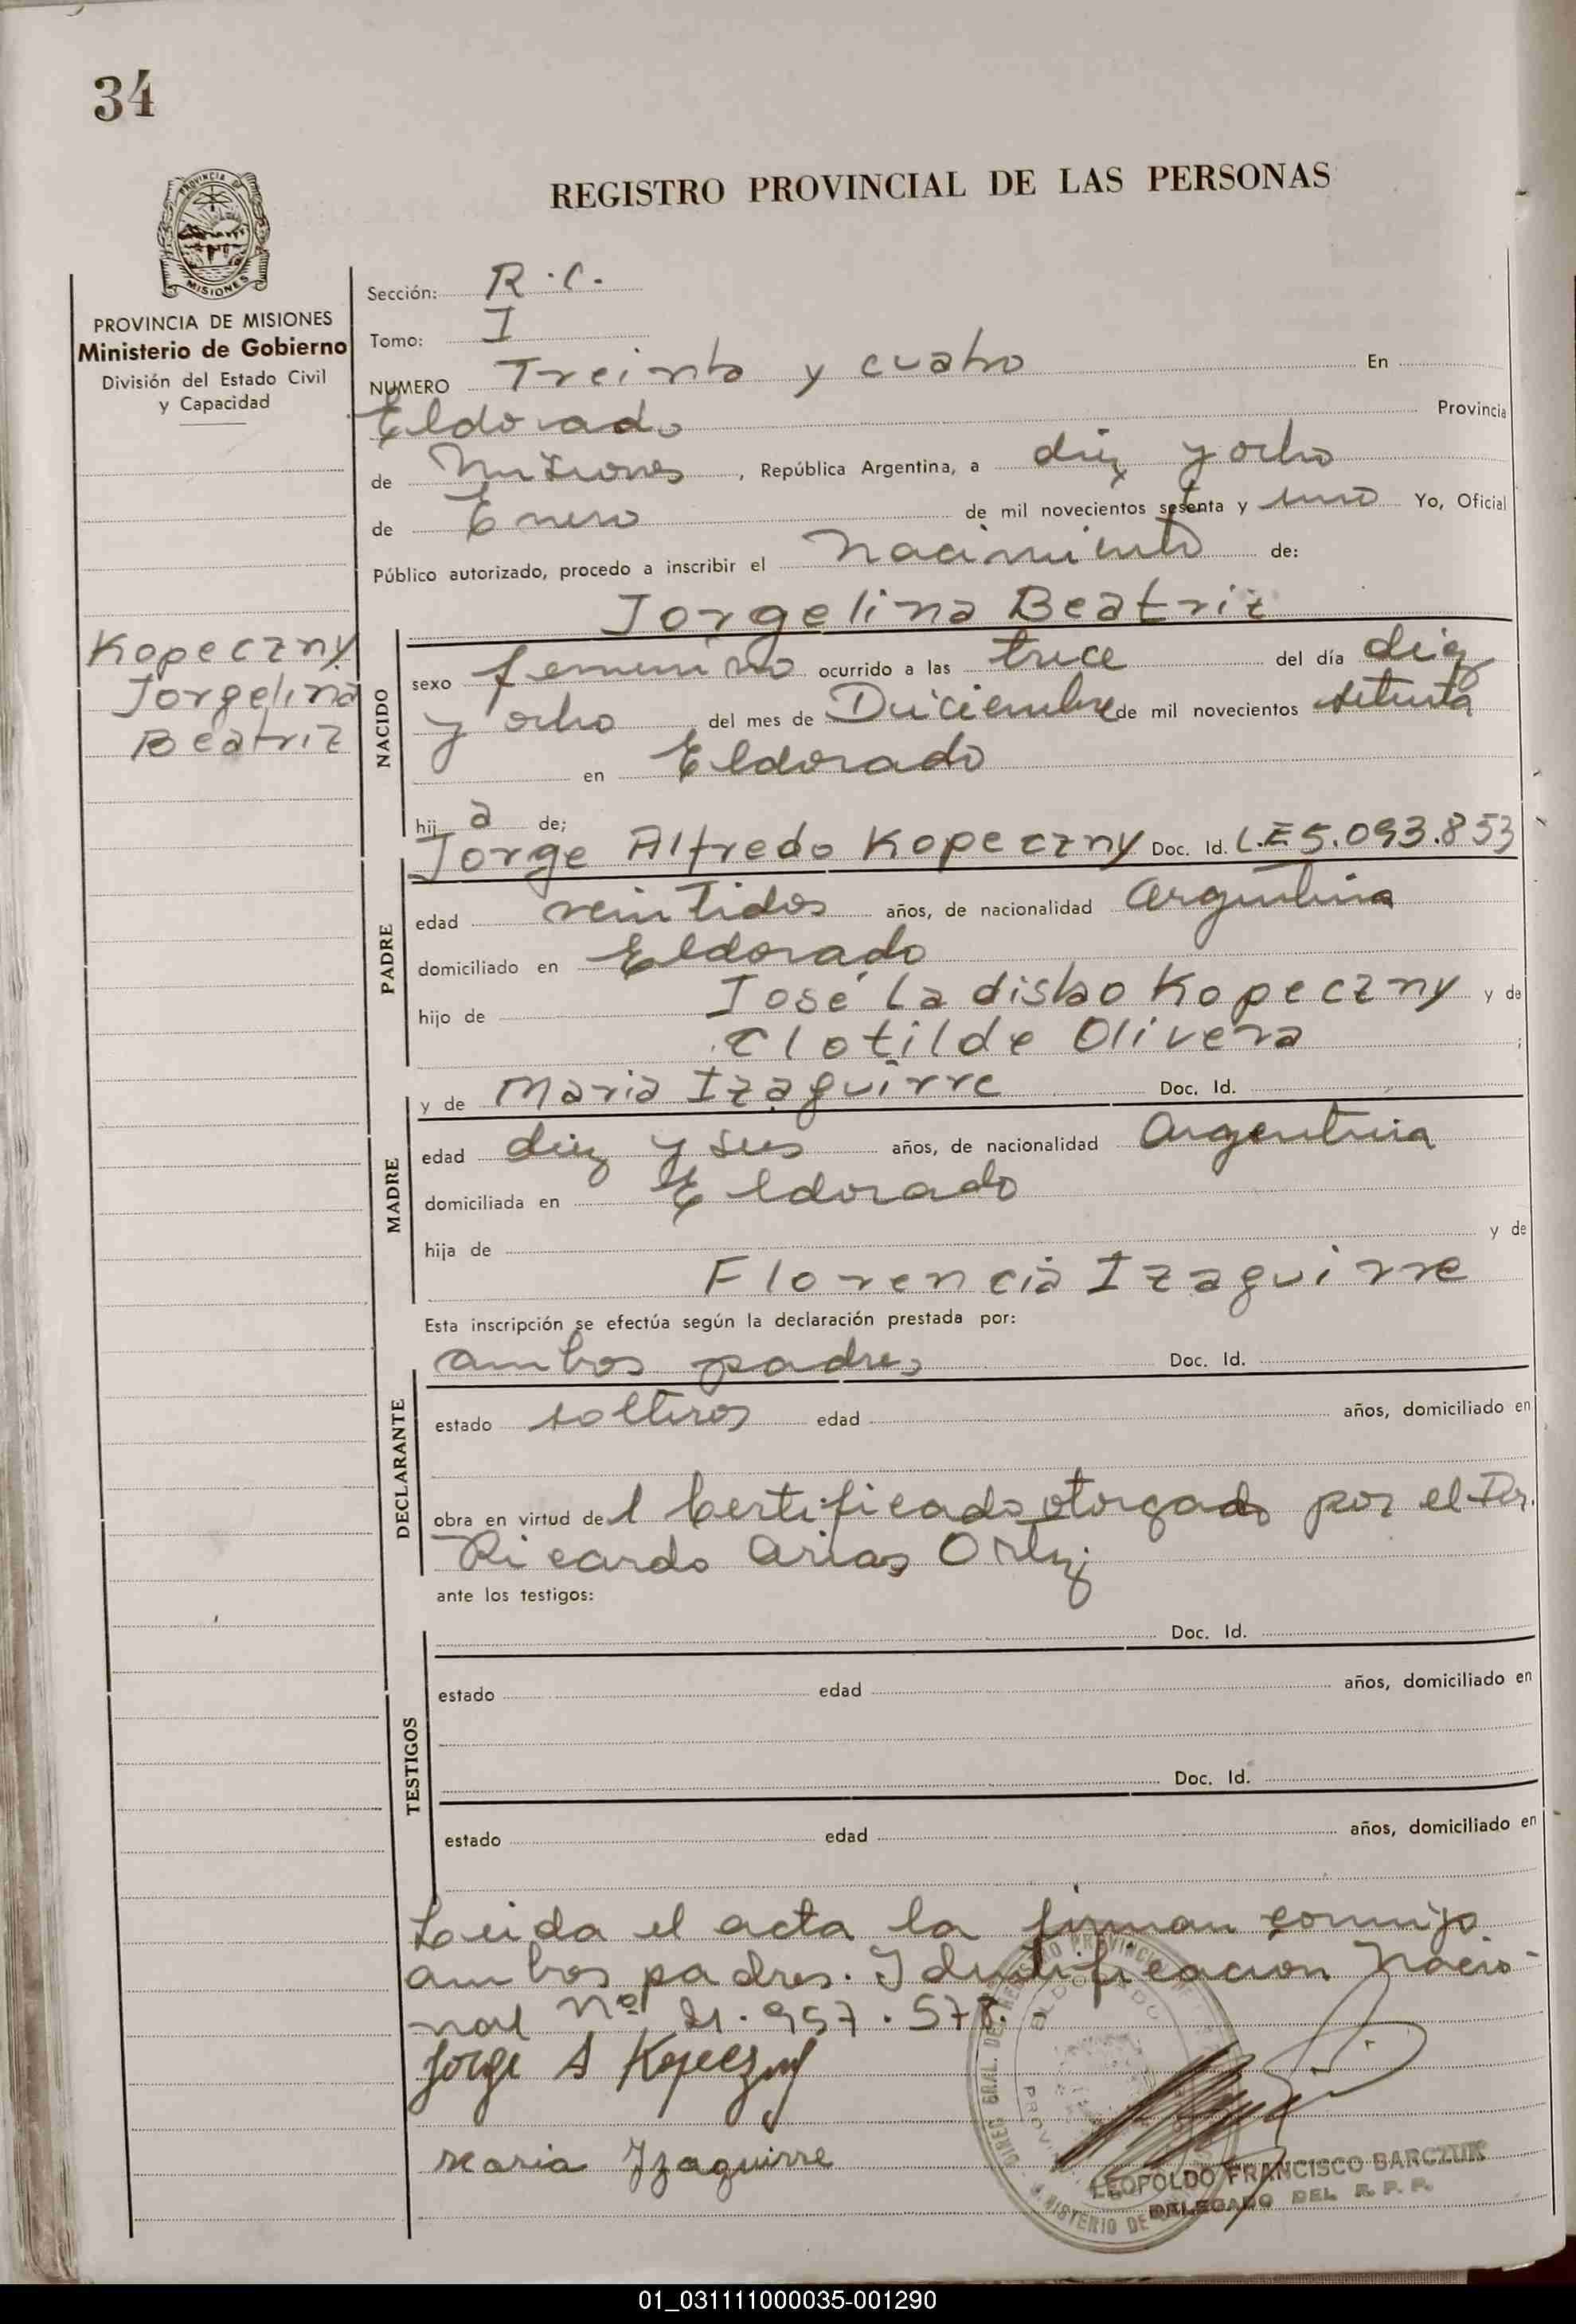 34
REGISTRO PROVINCIAL DE LAS PERSONAS
PROVINCIA DE
MISIONES
PROVINCIA DE MISIONES
Ministerio de Gobierno
División del Estado Civil
y Capacidad
Kopeczny
Jorgelina
Beatriz
Sección: R.C.
Tomo: I
NUMERO Treinta y cuatro En
Eldorado Provincia
de Misiones, República Argentina, a diez y ocho
de Enero de mil novecientos setenta y uno Yo, Oficial
Público autorizado, procedo a inscribir el Nacimiento de:
Jorgelina Beatriz
NACIDO
sexo femenino ocurrido a las trece del día diez
y ocho del mes de Diciembre de mil novecientos setenta
en Eldorado
hija de;
Jorge Alfredo Kopeczny Doc. Id. L.E 5.093.853
PADRE
edad veintidos años, de nacionalidad Argentina
domiciliado en Eldorado
hijo de José Ladislao Kopeczny y de
Clotilde Olivera ;
y de Maria Izaguirre Doc. Id.
MADRE
edad diez y seis años, de nacionalidad Argentina
domiciliada en Eldorado
hija de y de
Florencia Izaguirre
Esta inscripción se efectúa según la declaración prestada por:
ambos padres Doc. Id.
DECLARANTE
estado solteros edad años, domiciliado en
obra en virtud del Certificado otorgado por el Dr.
Ricardo Arias Ortiz
ante los testigos:
Doc. Id.
TESTIGOS
estado edad años, domiciliado en
Doc. Id.
estado edad años, domiciliado en
Leida el acta la firman conmigo
ambos padres. Identificación Nacio-
nal Nº 21.957.578.
Jorge A Kopeczny
Maria Izaguirre
ELDORADO
LEOPOLDO FRANCISCO BARCZUK
DELEGADO DEL R. P. P.
01_031111000035-001290